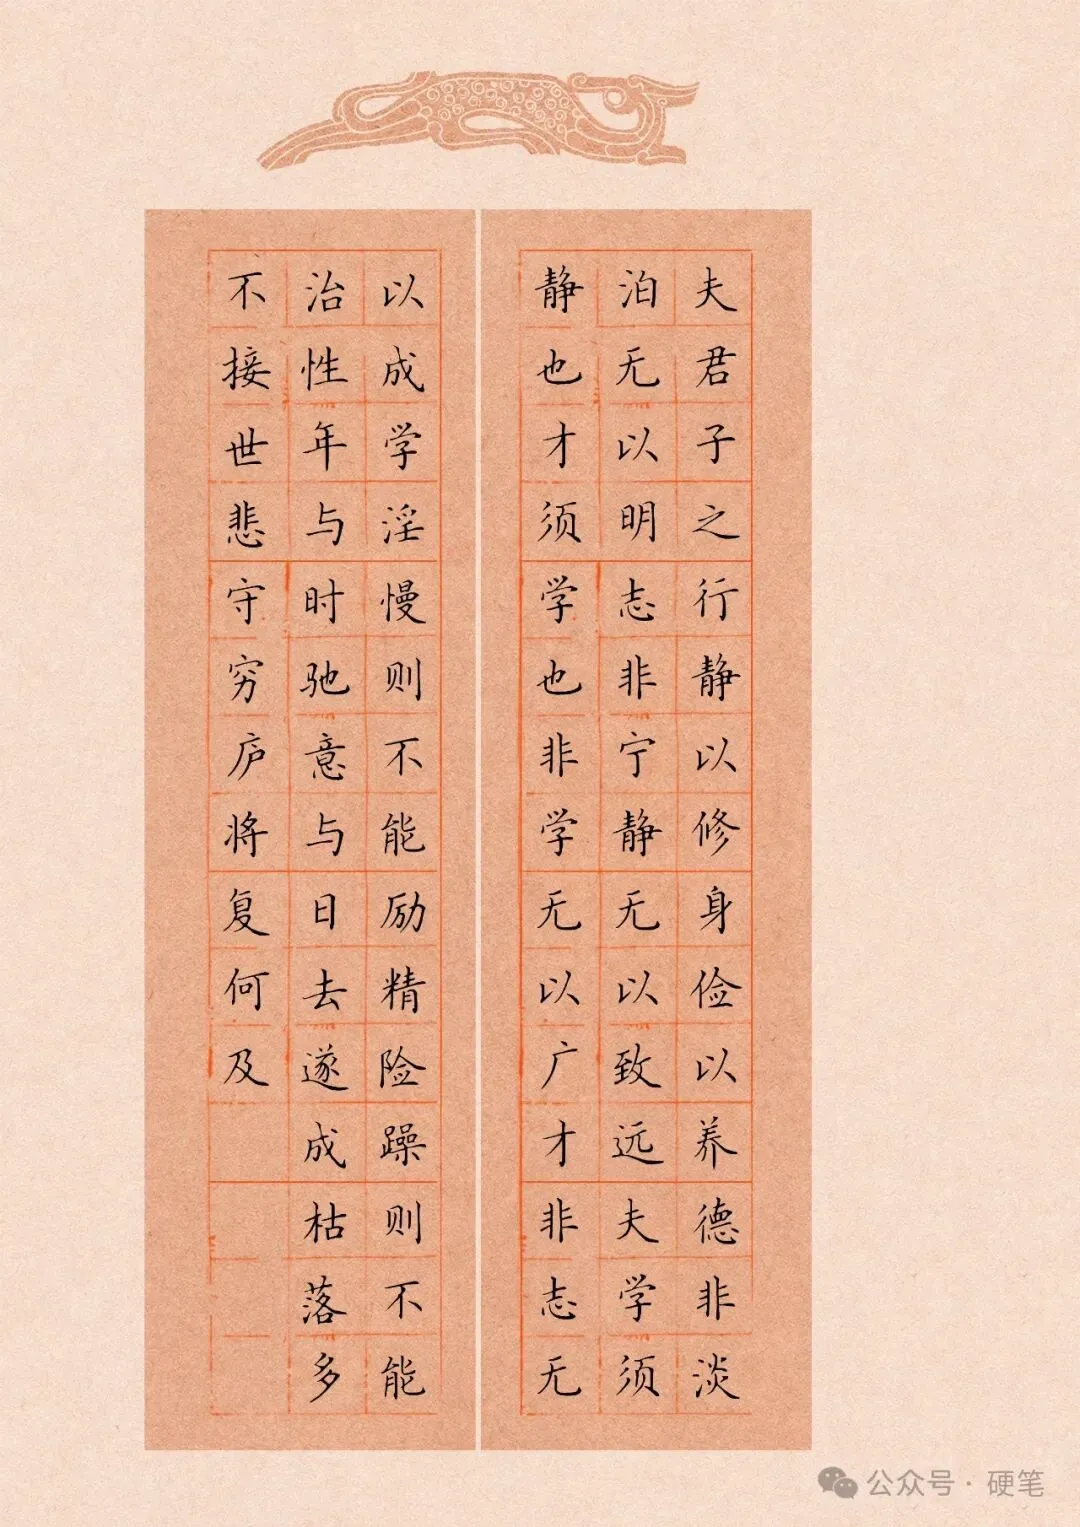 夫君子之行静以修身俭以养德非淡
泊无以明志非宁静无以致远夫学须
静也才须学也非学无以广才非志无
以成学淫慢则不能励精险躁则不能
治性年与时驰意与日去遂成枯落多
不接世悲守穷庐将复何及
公众号·硬笔